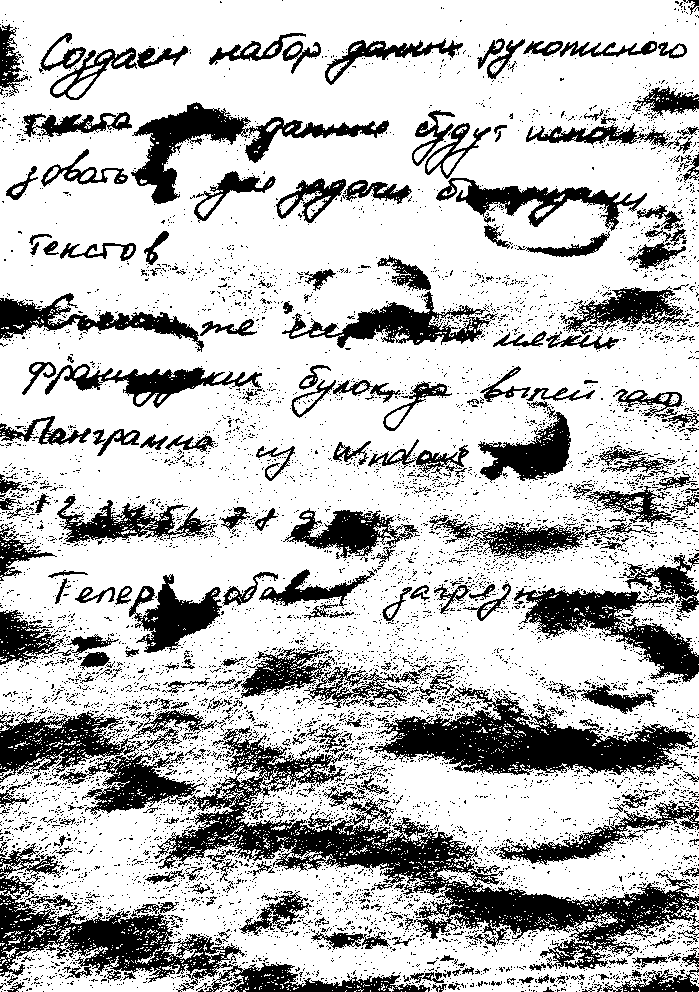 Создаем набор данных рукописного
текста данные будут исполь
зоваться для задачи бинаризации
текстов
же еще мягких
французских булок, да выпей чаю
Панграмма из Windows
1 2 3 4 5 6 7 8 9
Теперь добавим загрязнения